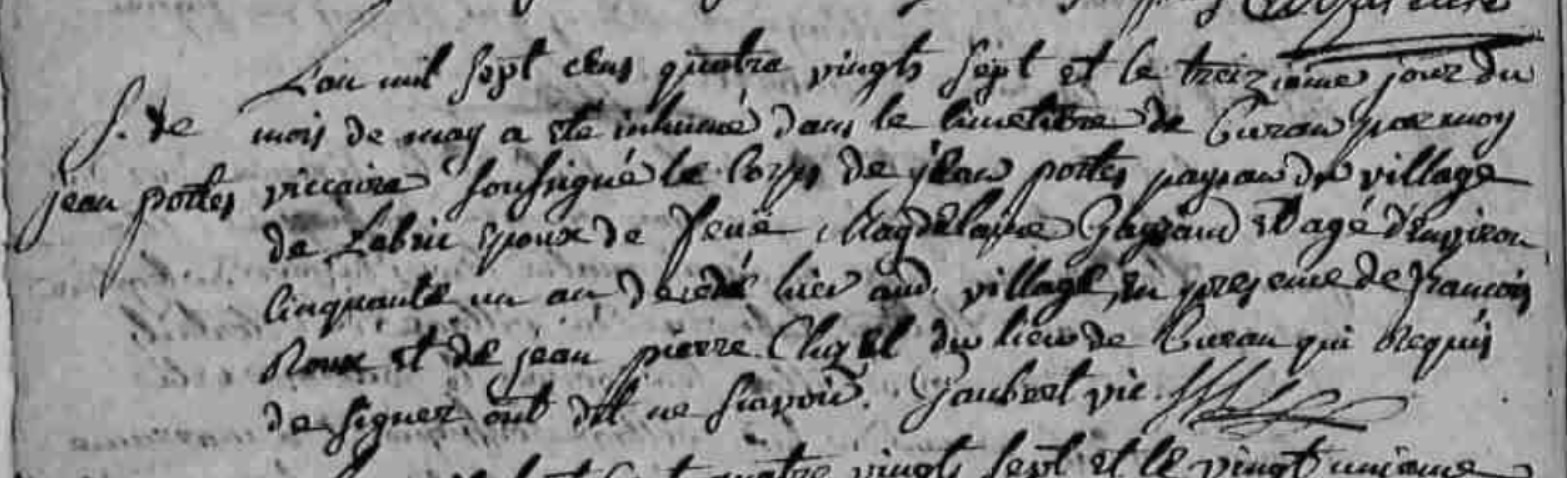 L'an mil sept cens quatre vingts sept et le treizième jour du
S. de
jean pottes
mois de may a été inhumé dans le cimetière de Curan par moy
viccaire soussigné le corps de jean pottes paysan du village
de Labric époux de feue Magdelaine et agé d'environ
cinquante un an décédé hier aud. village, en presence de francois
Roux et de jean pierre Cluzel du lieu de Curan qui requis
de signer ont dit ne sçavoir. Jaubert vic.
quatre vingts sept et le vingt unième